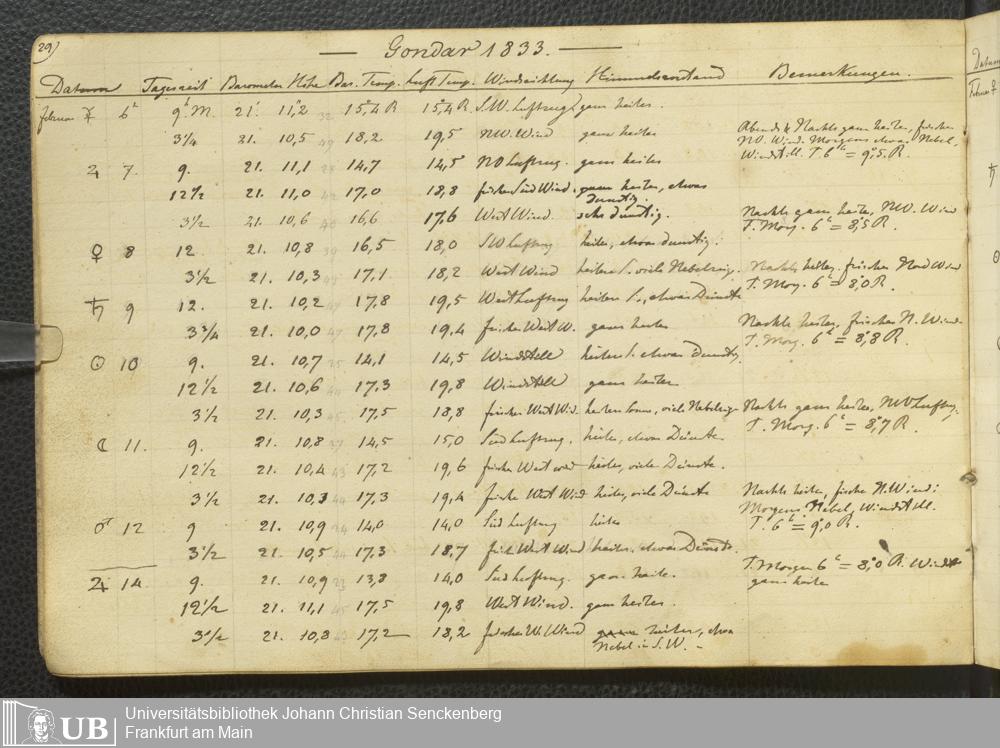 29)
— Gondar 1833. —
Datum Tageszeit Barometer Höhe Bar. Temp. Luft Temp. Windrichtung Himmelszustand Bemerkungen.
Februar ☿ 6 9h M. 21' 11,2 32 15,4 R 15,4 R. S.W. Luftzug ganz heiter.
3¼ 21. 10,5 49 18,2 19,5 NW. Wind ganz heiter Abends & Nachts ganz heiter, frischer
NO. Wind. Morgens etwas Nebel,
Windstill. T. 6h = 9,5 R.
♃ 7. 9. 21. 11,1 14,7 14,5 NO Luftzug. ganz heiter
12½ 21. 11,0 42 17,0 18,8 frischer Süd Wind. ganz heiter, etwas
dunstig.
3½ 21. 10,6 40 16,6 17,6 West Wind. sehr dunstig. Nachts ganz heiter, NW. Wind
T. Morg. 6h = 8,5 R.
♀ 8 12 21. 10,8 39 16,5 18,0 SW Luftzug heiter, etwas dunstig.
3½ 21. 10,3 17,1 18,2 West Wind heitere S. viele Nebelig. Nachts heiter, frischer Nord Wind
T. Morg. 6h = 8,0 R.
♄ 9 12. 21. 10,2 17,8 19,5 West Luftzug heitere S., etwas Dünste
3¾ 21. 10,0 47 17,8 19,4 frischer West W. ganz heiter Nachts heiter, frischer N. Wind.
T. Morg. 6h = 8,8 R.
☉ 10 9. 21. 10,7 25 14,1 14,5 Windstill heitere S. etwas dunstig
12½ 21. 10,6 44 17,3 19,8 Windstill ganz heiter
3½ 21. 10,3 45 17,5 18,8 frischer West Wd. heitere Sonne, viele Nebelig. Nachts ganz heiter, NW Luftzug.
T. Morg. 6h = 8,7 R.
☾ 11. 9. 21. 10,8 27 14,5 15,0 Süd Luftzug. heiter, etwas Dünste
12½ 21. 10,4 43 17,2 19,6 frischer West Wind heiter, viele Dünste.
3½ 21. 10,3 44 17,3 19,4 frische West Wind heiter, viele Dünste Nachts heiter, frische N. Wind;
Morgens Nebel, Windstill.
T. 6h = 9,0 R.
♂ 12 9 21. 10,9 24 14,0 14,0 Süd Luftzug heiter
3½ 21. 10,5 44 17,3 18,7 frisch West Wind heiter, etwas Dünste.
♃ 14. 9. 21. 10,9 23 13,8 14,0 Süd Luftzug. ganz heiter. T. Morgen 6h = 8,0 R. Windst
ganz heiter
12½ 21. 11,1 45 17,5 19,8 West Wind. ganz heiter.
3½ 21. 10,8 43 17,2 18,2 frischer W. Wind heiter, etwas
Nebel in S.W. –
Datum
Februar ♀
UB
Universitätsbibliothek Johann Christian Senckenberg
Frankfurt am Main